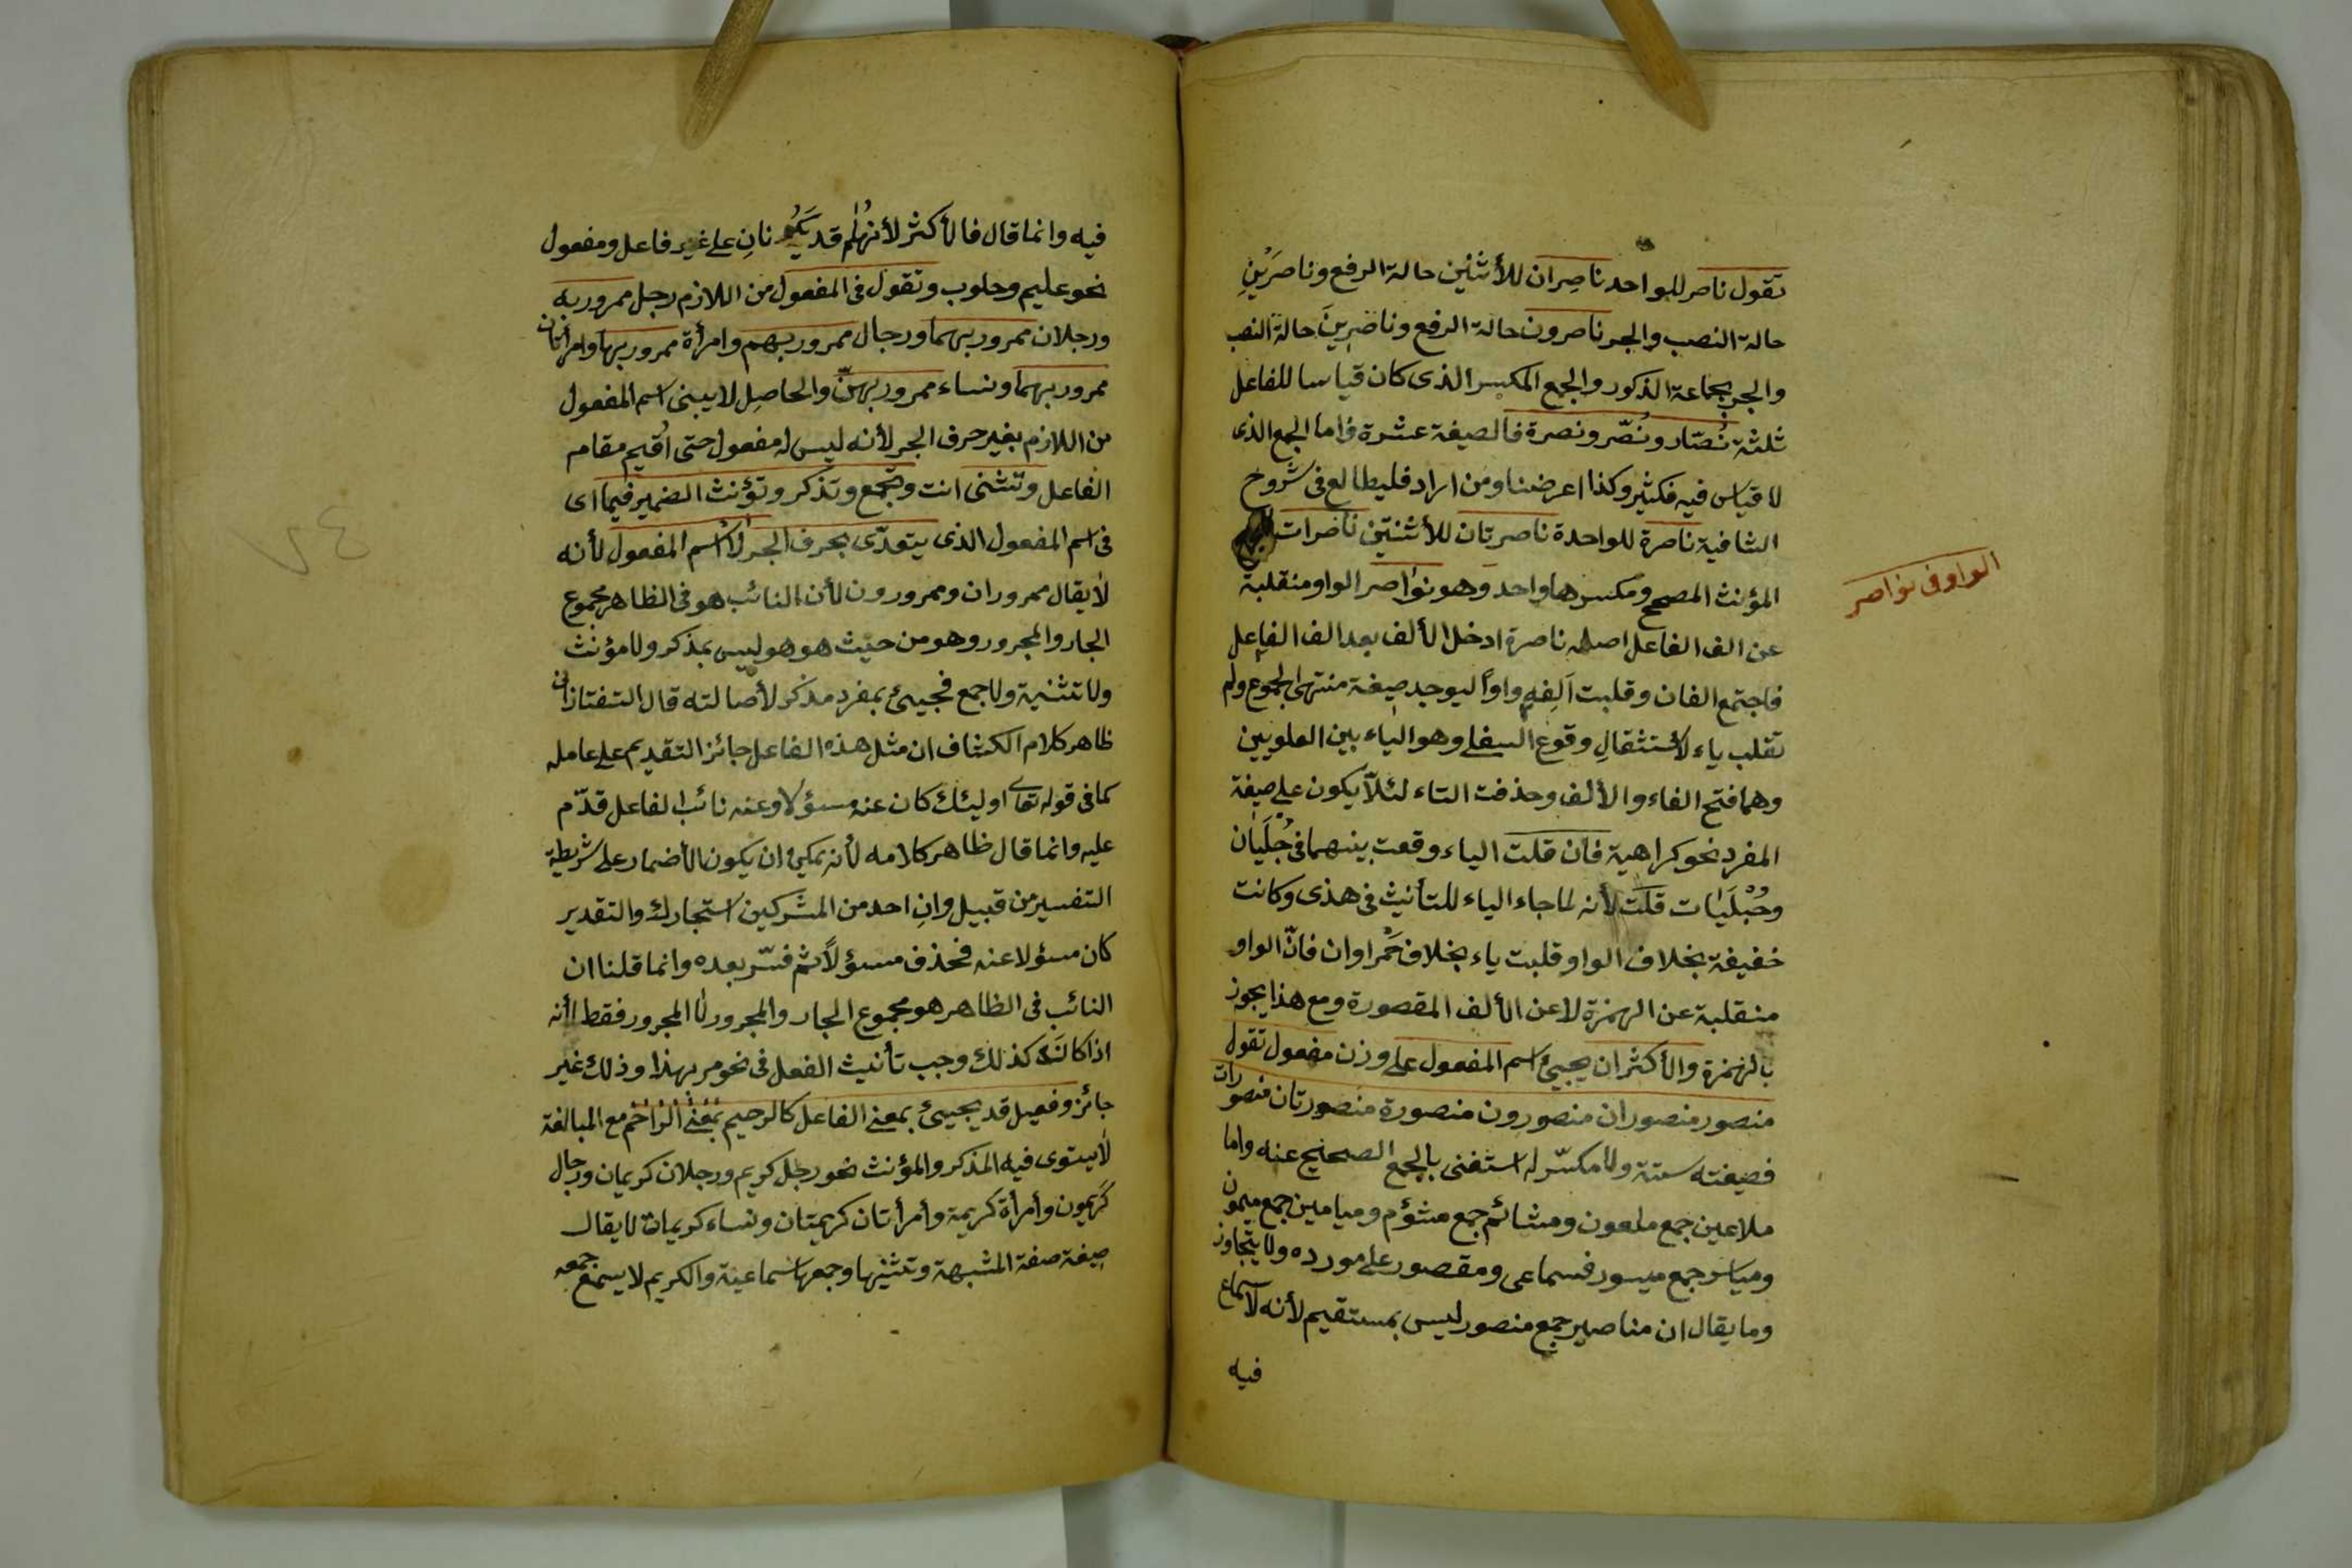 تقول ناصر للواحد ناصِران للأثنين حالة الرفع وناصرَيْنِ
حالة النصب والجر ناصرون حالة الرفع وناصِرِينَ حالة النصب
والجر بجماعة الذكور والجمع المكسر الذى كان قياسا للفاعل
ثلثة نُصّار ونُصّر ونصرة فالصيغة عشرة واما الجمع الذى
لا قياس فيه فكثير وكذا اعرضنا ومن اراد فليطالع فى شروح
الشافية ناصرة للواحدة ناصرتان للأثنتين ناصرات
المؤنث المصحح ومكسرها واحد وهو نواصر الواو منقلبة
عن الف الفاعل اصله ناصرة ادخل الألف بعد الف الفاعل
فاجتمع الفان وقلبت اَلِفه واوًا ليوجد صيغة منتهى الجموع ولم
تقلب ياء لأستثقالِ وقوع السفلى وهو الياء بين العلويين
وهما فتح الفاء والألف وحذفت التاء لئلّا يكون على صيغة
المفرد نحو كراهية فان قلت الياء وقعت بينهما فى جُلَيان
وحُبْلَيَات قلت لأنه لما جاء الياء للتأنيث فى هذى وكانت
خفيفة بخلاف الواو قلبت ياء بخلاف حَمْراوان فانّ الواو
منقلبة عن الهمزة لا عن الألف المقصورة ومع هذا يجوز
بالهمزة والأكثر ان يجيئ اسم المفعول على وزن مفعول تقول
منصور منصوران منصورون منصورة منصورتان منصورات
فصيغته ستة ولا مكسّر له استغنى بالجمع الصحيح عنه واما
ملاعين جمع ملعون ومشائم جمع مشؤم وميامين جمع ميمون
ومياسر جمع ميسور فسماعى ومقصور على مورده ولا يتجاوز
وما يقال ان مناصير جمع منصور ليس بمستقيم لأنه لا سماع
فيه
الواو فى نواصر
فيه وانما قال فالأكثر لأنهما قد يكونانِ على غير فاعل ومفعول
نحو عليم وحلوب وتقول فى المفعول من اللازم رجل ممرور به
ورجلان ممرور بهما ورجال ممرور بهم وامرأة ممرور بها وامرأتان
ممرور بهما ونساء ممرور بهنّ والحاصِل لا يبنى اسم المفعول
من اللازم بغير حرف الجر لأنه ليس له مفعول حتى اُقيم مقام
الفاعل وتثنى انت وتجمع وتذكر وتؤنث الضمير فيما اى
فى اسم المفعول الذى يتعدّى بحرف الجر لا اسم المفعول لأنه
لا يقال ممروران وممرورون لأن النائب هو فى الظاهر مجموع
الجار والمجرور وهو من حيث هو هو ليس بمذكر ولا مؤنث
ولا تثنية ولا جمع فجيئ بمفرد مذكر لأصالته قال التفتازانى
ظاهر كلام الكشاف ان مثل هذه الفاعل جائز التقديم على عامله
كما فى قوله تعالى اوليئك كان عنه مسؤلا وعنه نائب الفاعل قدّم
عليه وانما قال ظاهر كلامه لأنه يمكن ان يكون الأضمار على شريطة
التفسير من قبيل وانِ احد من المشركين استجارك والتقدير
كان مسؤلا عنه فحذف مسؤلًا ثم فسّر بعده وانما قلنا ان
النائب فى الظاهر هو مجموع الجار والمجرور لا المجرور فقط لأنه
اذا كان كذلك وجب تأنيث الفعل فى نحو مر بهذا وذلك غير
جائز وفعيل قد يجيئ بمعنى الفاعل كالرحيم بمعنى الراحم مع المبالغة
لا يستوى فيه المذكر والمؤنث نحو رجل كريم ورجلان كريمان ورجال
كريمون وأمرأة كريمة وأمرأتان كريمتان ونساء كريمات لا يقال
صيغة صفة المشبهة وتثنيها وجمعها سماعية والكريم لا يسمع جمعه